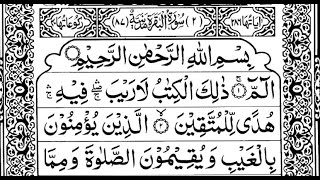 اٰیَاتُهَا ٢٨٦ (٢) سُوْرَةُ الْبَقَرَةِ مَدَنِیَّةٌ (٨٧) رُكُوْعَاتُهَا
بِسْمِ اللّٰهِ الرَّحْمٰنِ الرَّحِیْمِ
الٓمّٓ ۚ ذٰلِكَ الْكِتٰبُ لَا رَیْبَ ۛۚ فِیْهِ ۛۚ
هُدًی لِّلْمُتَّقِیْنَ ۙ الَّذِیْنَ یُؤْمِنُوْنَ
بِالْغَیْبِ وَ یُقِیْمُوْنَ الصَّلٰوةَ وَ مِمَّا